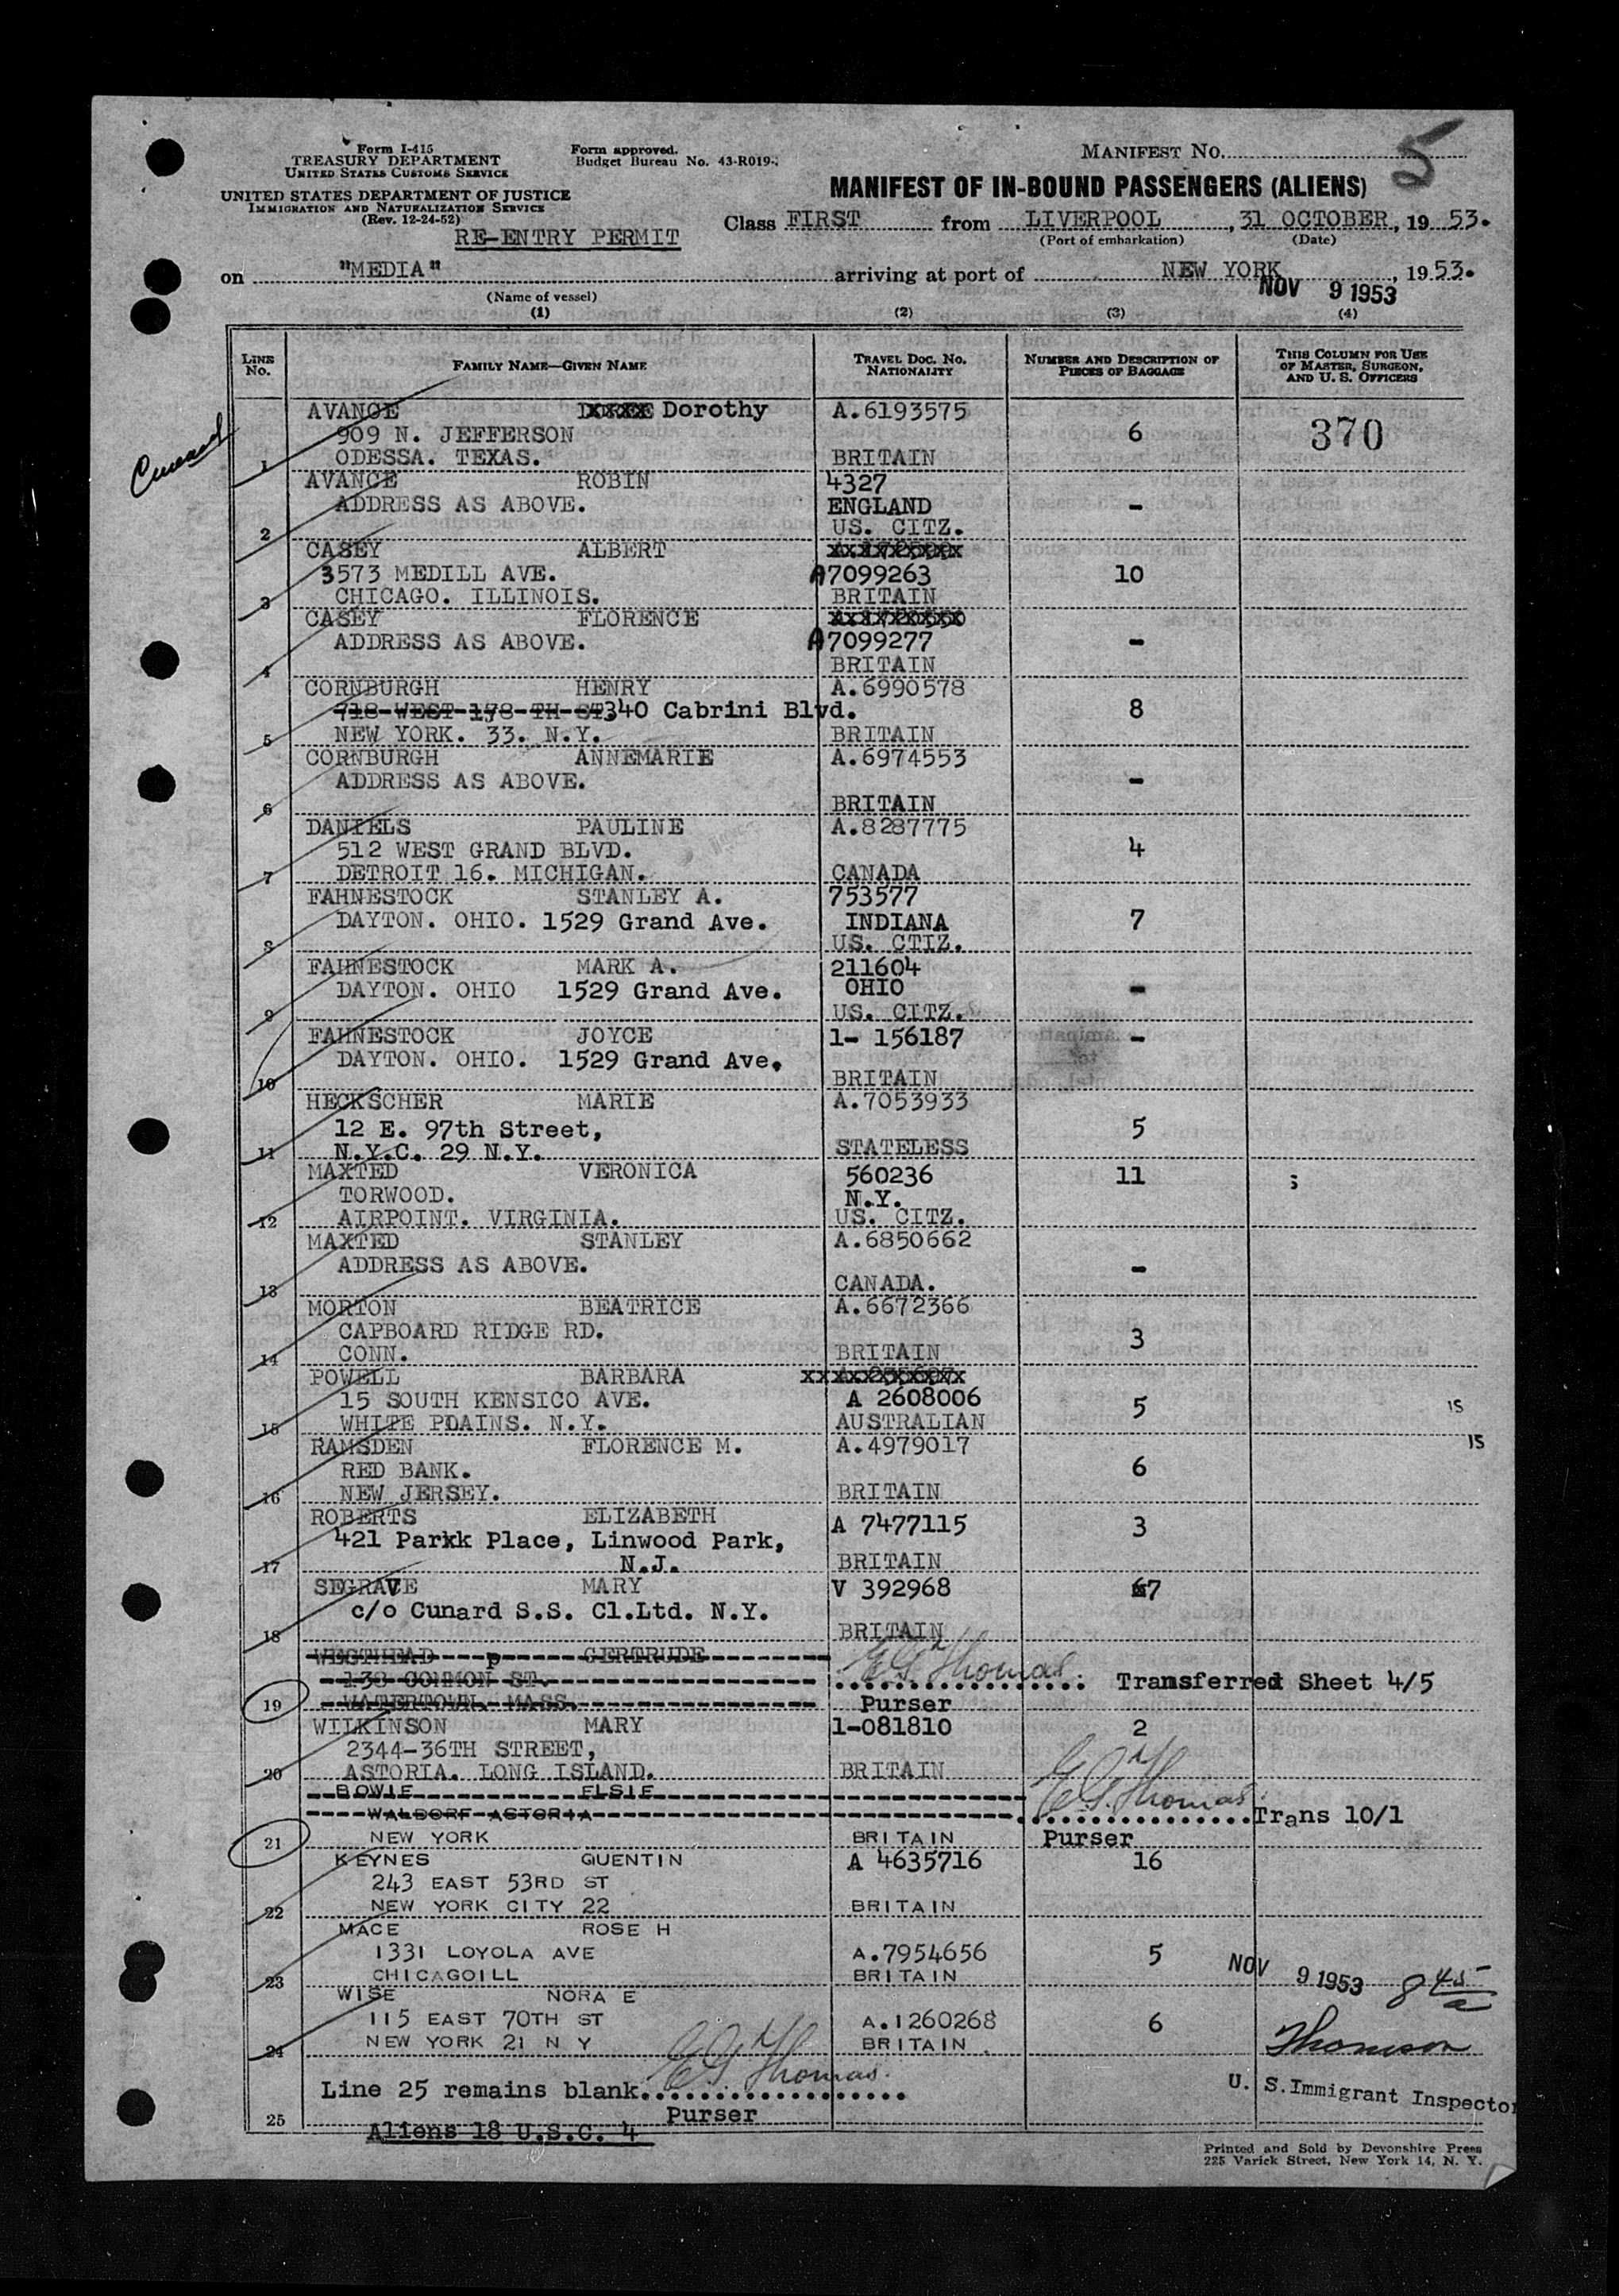 Form I-415
TREASURY DEPARTMENT
UNITED STATES CUSTOMS SERVICE
UNITED STATES DEPARTMENT OF JUSTICE
IMMIGRATION AND NATURALIZATION SERVICE
(Rev. 12-24-52)
Form approved.
Budget Bureau No. 43-R019-
MANIFEST NO.
5
MANIFEST OF IN-BOUND PASSENGERS (ALIENS)
RE-ENTRY PERMIT
Class FIRST from LIVERPOOL, 31 OCTOBER, 1953.
(Port of embarkation) (Date)
on "MEDIA" arriving at port of NEW YORK, 1953.
(Name of vessel) NOV 9 1953
(1) (2) (3) (4)
LINE No. FAMILY NAME—GIVEN NAME TRAVEL DOC. NO. NATIONALITY NUMBER AND DESCRIPTION OF PIECES OF BAGGAGE THIS COLUMN FOR USE OF MASTER, SURGEON, AND U. S. OFFICERS
Cunard
AVANCE Dorothy A.6193575
909 N. JEFFERSON 6 370
1 ODESSA. TEXAS. BRITAIN
AVANCE ROBIN 4327
ADDRESS AS ABOVE. ENGLAND -
2 US. CITZ.
CASEY ALBERT
3573 MEDILL AVE. A7099263 10
3 CHICAGO. ILLINOIS. BRITAIN
CASEY FLORENCE
ADDRESS AS ABOVE. A7099277 -
4 BRITAIN
CORNBURGH HENRY A.6990578
718 WEST 178 TH ST 340 Cabrini Blvd. 8
5 NEW YORK. 33. N.Y. BRITAIN
CORNBURGH ANNEMARIE A.6974553
ADDRESS AS ABOVE. -
6 BRITAIN
DANIELS PAULINE A.8287775
512 WEST GRAND BLVD. 4
7 DETROIT 16. MICHIGAN. CANADA
FAHNESTOCK STANLEY A. 753577
DAYTON. OHIO. 1529 Grand Ave. INDIANA 7
8 US. CTIZ.
FAHNESTOCK MARK A. 211604
DAYTON. OHIO 1529 Grand Ave. OHIO -
9 US. CITZ.
FAHNESTOCK JOYCE 1- 156187 -
DAYTON. OHIO. 1529 Grand Ave.
10 BRITAIN
HECKSCHER MARIE A.7053933
12 E. 97th Street, 5
11 N.Y.C. 29 N.Y. STATELESS
MAXTED VERONICA 560236 11 ;
TORWOOD. N.Y.
12 AIRPOINT. VIRGINIA. US. CITZ.
MAXTED STANLEY A.6850662
ADDRESS AS ABOVE. -
13 CANADA.
MORTON BEATRICE A.6672366
CAPBOARD RIDGE RD. 3
14 CONN. BRITAIN
POWELL BARBARA
15 SOUTH KENSICO AVE. A 2608006 5 15
15 WHITE PDAINS. N.Y. AUSTRALIAN
RAMSDEN FLORENCE M. A.4979017 15
RED BANK. 6
16 NEW JERSEY. BRITAIN
ROBERTS ELIZABETH A 7477115 3
421 Parxk Place, Linwood Park,
17 N.J. BRITAIN
SEGRAVE MARY V 392968 67
c/o Cunard S.S. Cl.Ltd. N.Y.
18 BRITAIN
WESTHEAD p GERTRUDE E G Thomas
138 COMMON ST. Transferred Sheet 4/5
19 WATERTOWN. MASS. Purser
WILKINSON MARY 1-081810 2
2344-36TH STREET,
20 ASTORIA. LONG ISLAND. BRITAIN
BOWIE ELSIE E G Thomas
WALDORF ASTORIA Trans 10/1
21 NEW YORK BRITAIN Purser
KEYNES QUENTIN A 4635716 16
243 EAST 53RD ST
22 NEW YORK CITY 22 BRITAIN
MACE ROSE H
1331 LOYOLA AVE A.7954656 5
23 CHICAGOILL BRITAIN NOV 9 1953 8 45 a
WISE NORA E
115 EAST 70TH ST A.1260268 6
24 NEW YORK 21 N Y BRITAIN Thomson
E G Thomas
Line 25 remains blank. U. S. Immigrant Inspector
25 Purser
Aliens 18 U.S.C. 4
Printed and Sold by Devonshire Press
225 Varick Street, New York 14, N. Y.